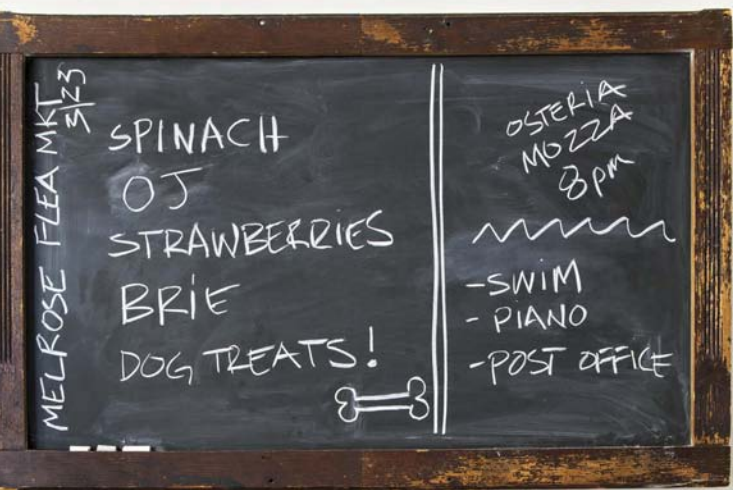 MELROSE FLEA MKT
3/23
SPINACH
OJ
STRAWBERRIES
BRiE
DOG TREATS!
OSTERiA
MOZZA
8pm
-SWiM
- PiANO
-POST OFFICE